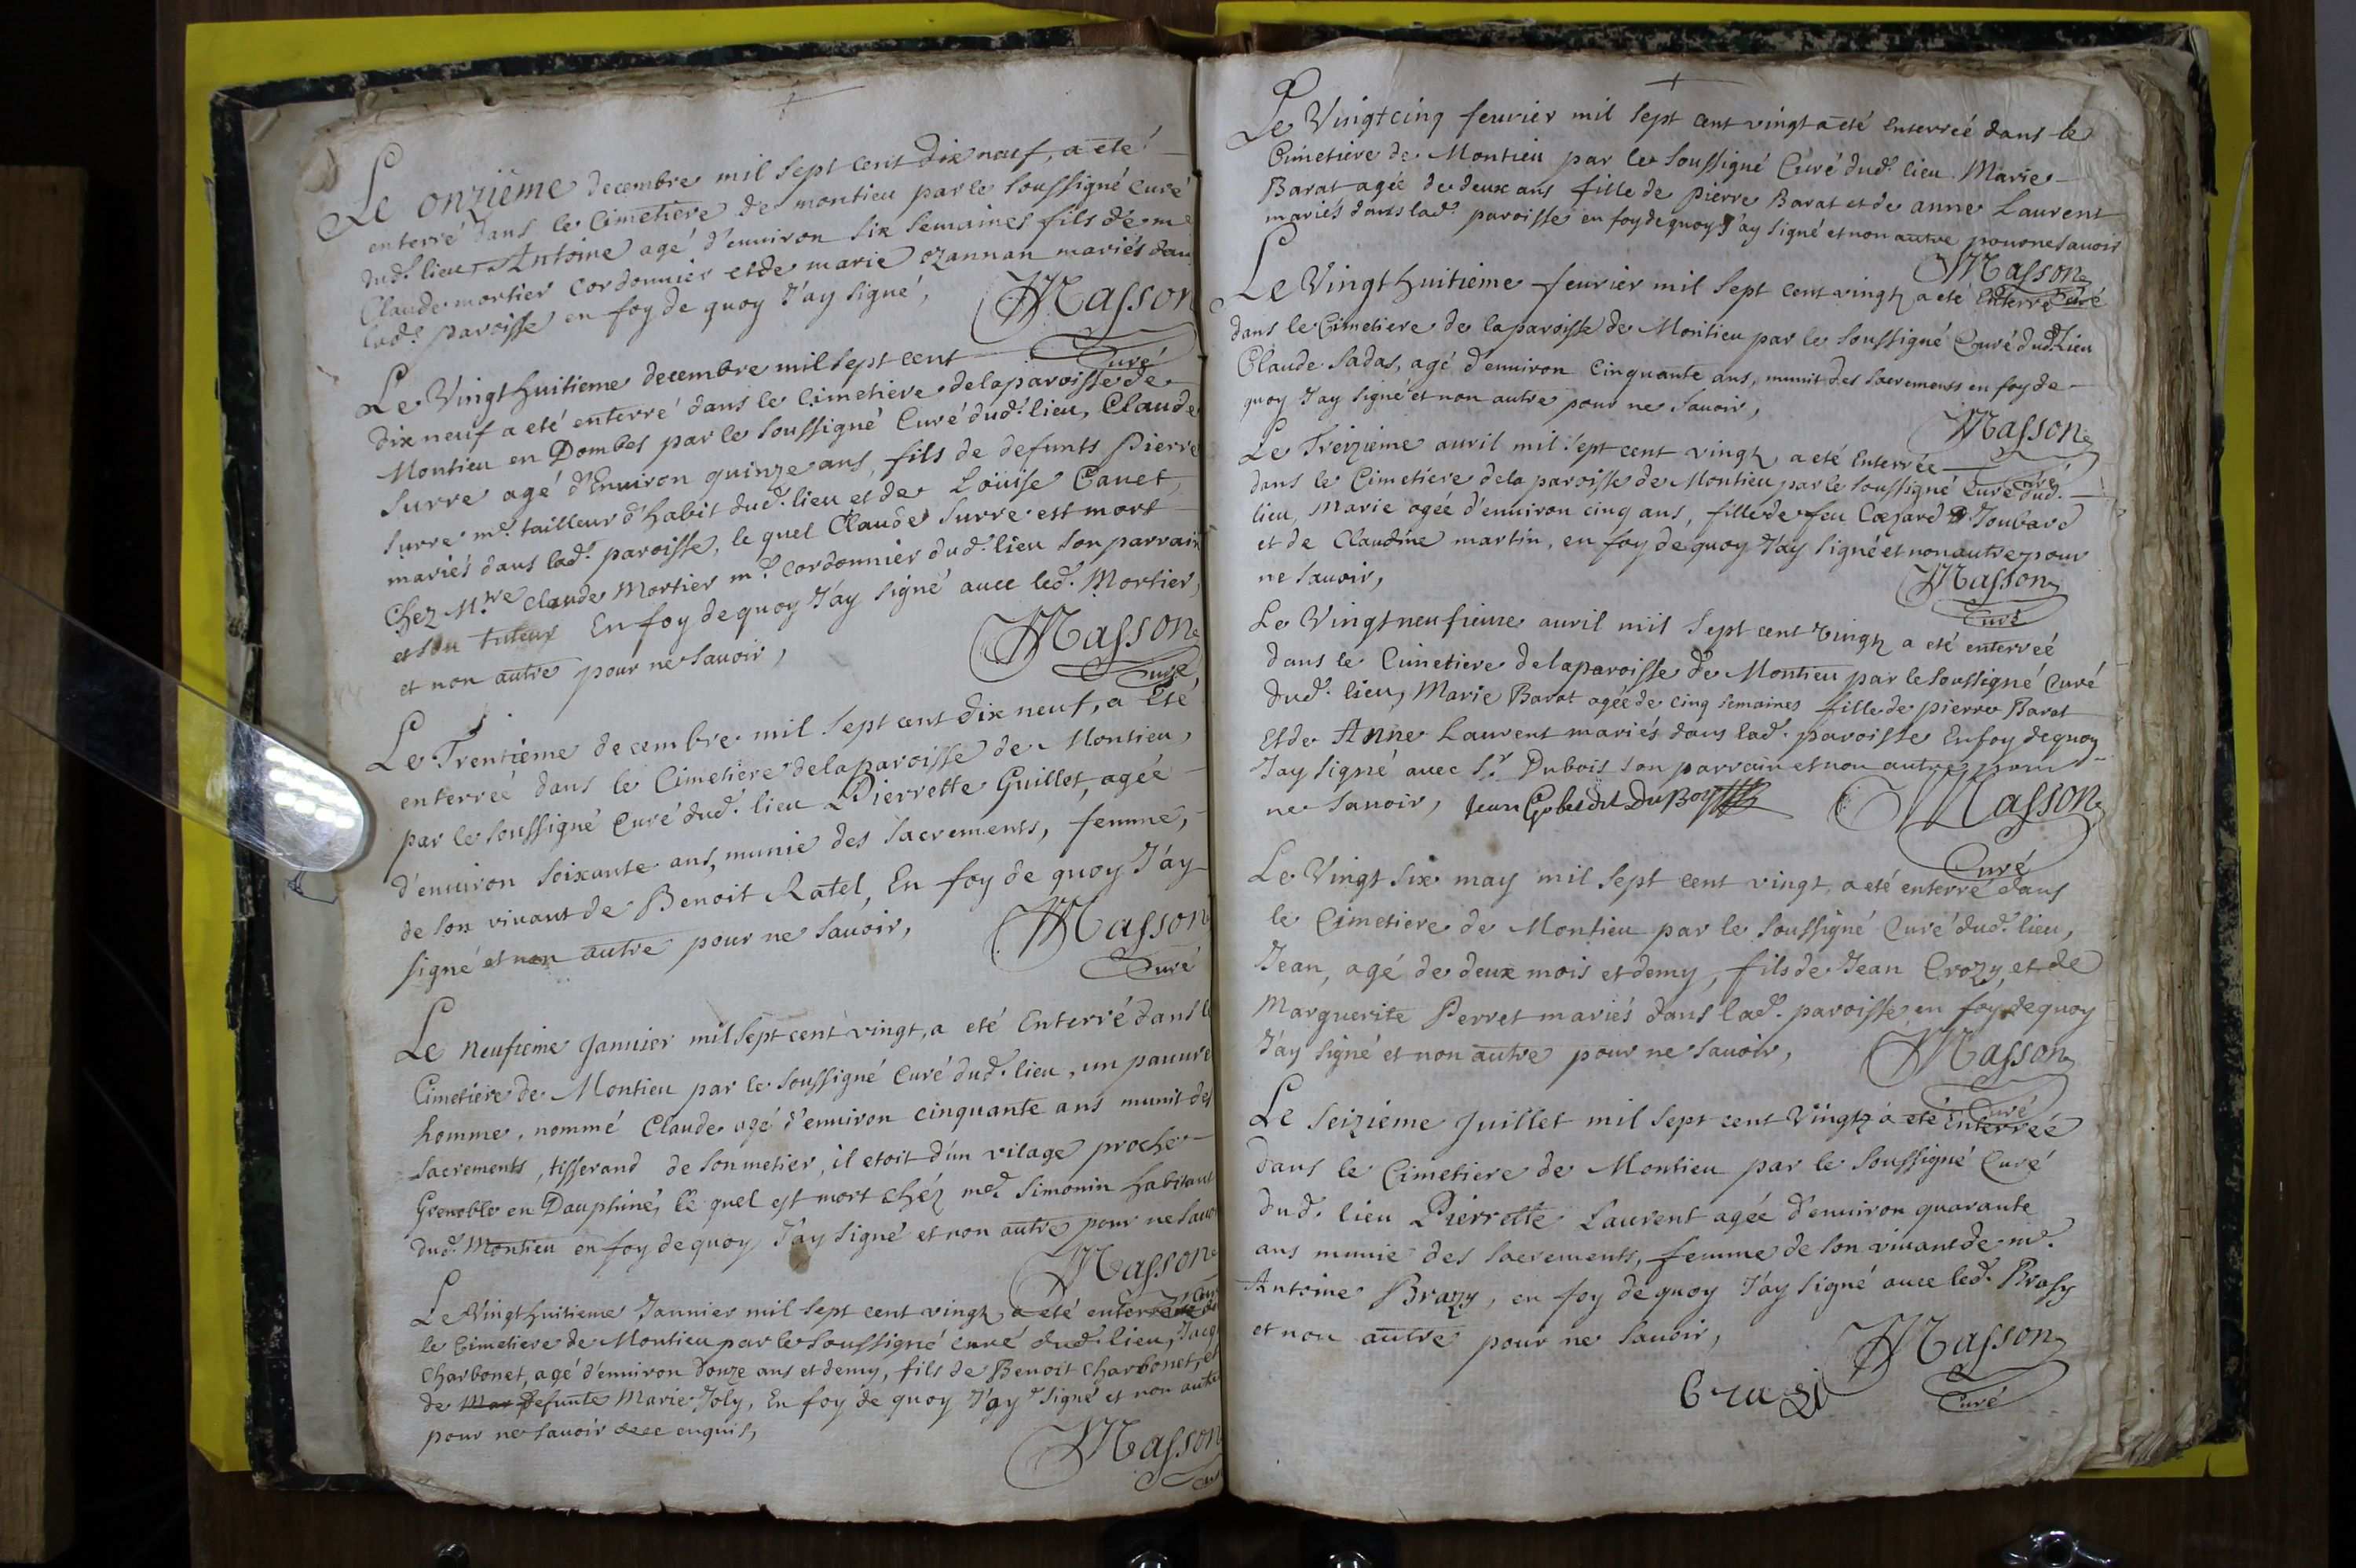 Le onziême decembre mil sept cent dix neuf, a eté
enterré dans le Cimetiere de montieu par le soussigné Curé
dud. lieu, Antoine agé d'enuiron six semaines fils de m.e
Claude mortier Cordonnier et de marie ozannan mariés dan
lad. paroisse en foy de quoy J'ay signé,
Masson
Curé
Le Vingt huitieme decembre mil sept cent
dix neuf a eté enterré dans le Cimetiere de la paroisse de
Montieu en Dombes par le soussigné Curé dud. lieu, Claude
surre agé d'Enuiron quinze ans, fils de defunts Pierre
surre m.e tailleur d'habit dud. lieu et de Loüise Canet,
mariés dans lad. paroisse, le quel Claude surre est mort
Chez M.re Claude Mortier m.e Cordonnier dud. lieu son parrain
et son tuteur En foy de quoy J'ay signé auec led. Mortier,
et non autre pour ne sauoir,
Masson
Curé
Le Trentieme decembre mil sept cent dix neuf, a Eté
enterreé dans le Cimetiere de la paroisse de Montieu,
par le soussigné Curé dud. lieu Pierrette Guillet, agée
d'enuiron soixante ans, munie des sacrements, femme,
de son viuant de Benoit Ratel, En foy de quoy J'ay
signé et non autre pour ne sauoir,
Masson
Curé
Le neufieme Januier mil sept cent vingt, a eté Enterré dans le
Cimetiere de Montieu par le soussigné Curé dud. lieu, un pauure
homme, nommé Claude agé d'enuiron cinquante ans munit des
sacrements, tisserand de son metier, il etoit d'un vilage proche
Grenoble en Dauphiné, le quel est mort chéz m.e Simonin habitant
dud. Montieu en foy de quoy J'ay signé et non autre pour ne sauo
Masson
Le Vingt huitieme Januier mil sept cent vingt a eté enterré
le Cimetiere de Montieu par le soussigné Curé dud. lieu, Jacq
Charbonet, agé d'enuiron douze ans et demy, fils de Benoit Charbonet, et
de Mar defunte Marie Joly, En foy de quoy J'ay signé et non autre
pour ne sauoir de ce enquis,
Masson
Le Vingt cinq feurier mil sept cent vingt a eté Enterreé dans le
Cimetiere de Montieu par le soussigné Curé dud. lieu Marie
Barat agée de deux ans fille de Pierre Barat et de anne Laurent
mariés dans lad. paroisse en foy de quoy J'ay signé et non autre pour ne sauoir
Masson
Curé
Le Vingt huitieme feurier mil sept cent vingt a eté Enterré
dans le Cimetiere de la paroisse de Montieu par le soussigné Curé dud. Lieu
Claude Sadas, agé d'enuiron Cinquante ans, munit des sacremens en foy de
quoy J'ay signé et non autre pour ne sauoir,
Masson
Curé
Le Treizieme auril mil sept cent vingt, a eté Enterrée
dans le Cimetiere de la paroisse de Montieu par le soussigné Curé dud.
lieu, Marie agée d'enuiron cinq ans, fille de feu Cæsard Joubard
et de Claudine martin, en foy de quoy J'ay signé et non autre pour
ne sauoir,
Masson
Curé
Le Vingt neufieme auril mil sept cent vingt a eté enterreé
dans le Cimetiere de la paroisse de Montieu par le soussigné Curé
dud. lieu, Marie Barat agée de cinq semaines fille de pierre Barat
et de Anne Laurent mariés dans lad. paroisse En foy de quoy
J'ay signé auec S.r Dubois son parrain et non autre pour
ne sauoir, Jean Gobet dit DuBois
Masson
Curé
Le Vingt six may mil sept cent vingt, a eté enterré dans
le Cimetiere de Montieu par le soussigné Curé dud. lieu,
Jean, agé de deux mois et demy, fils de Jean Crozy, et de
Marguerite Perret mariés dans lad. paroisse en foy de quoy
J'ay signé et non autre pour ne sauoir,
Masson
Curé
Le seizieme Juillet mil sept cent Vingt a eté Enterreé
dans le Cimetiere de Montieu par le soussigné Curé
dud. lieu Pierrette Laurent agée d'enuiron quarante
ans munie des sacrements, femme de son viuant de m.e
Antoine Brazy, en foy de quoy J'ay signé auec led. Brasy
et non autre pour ne sauoir,
Masson
Curé
Brazi